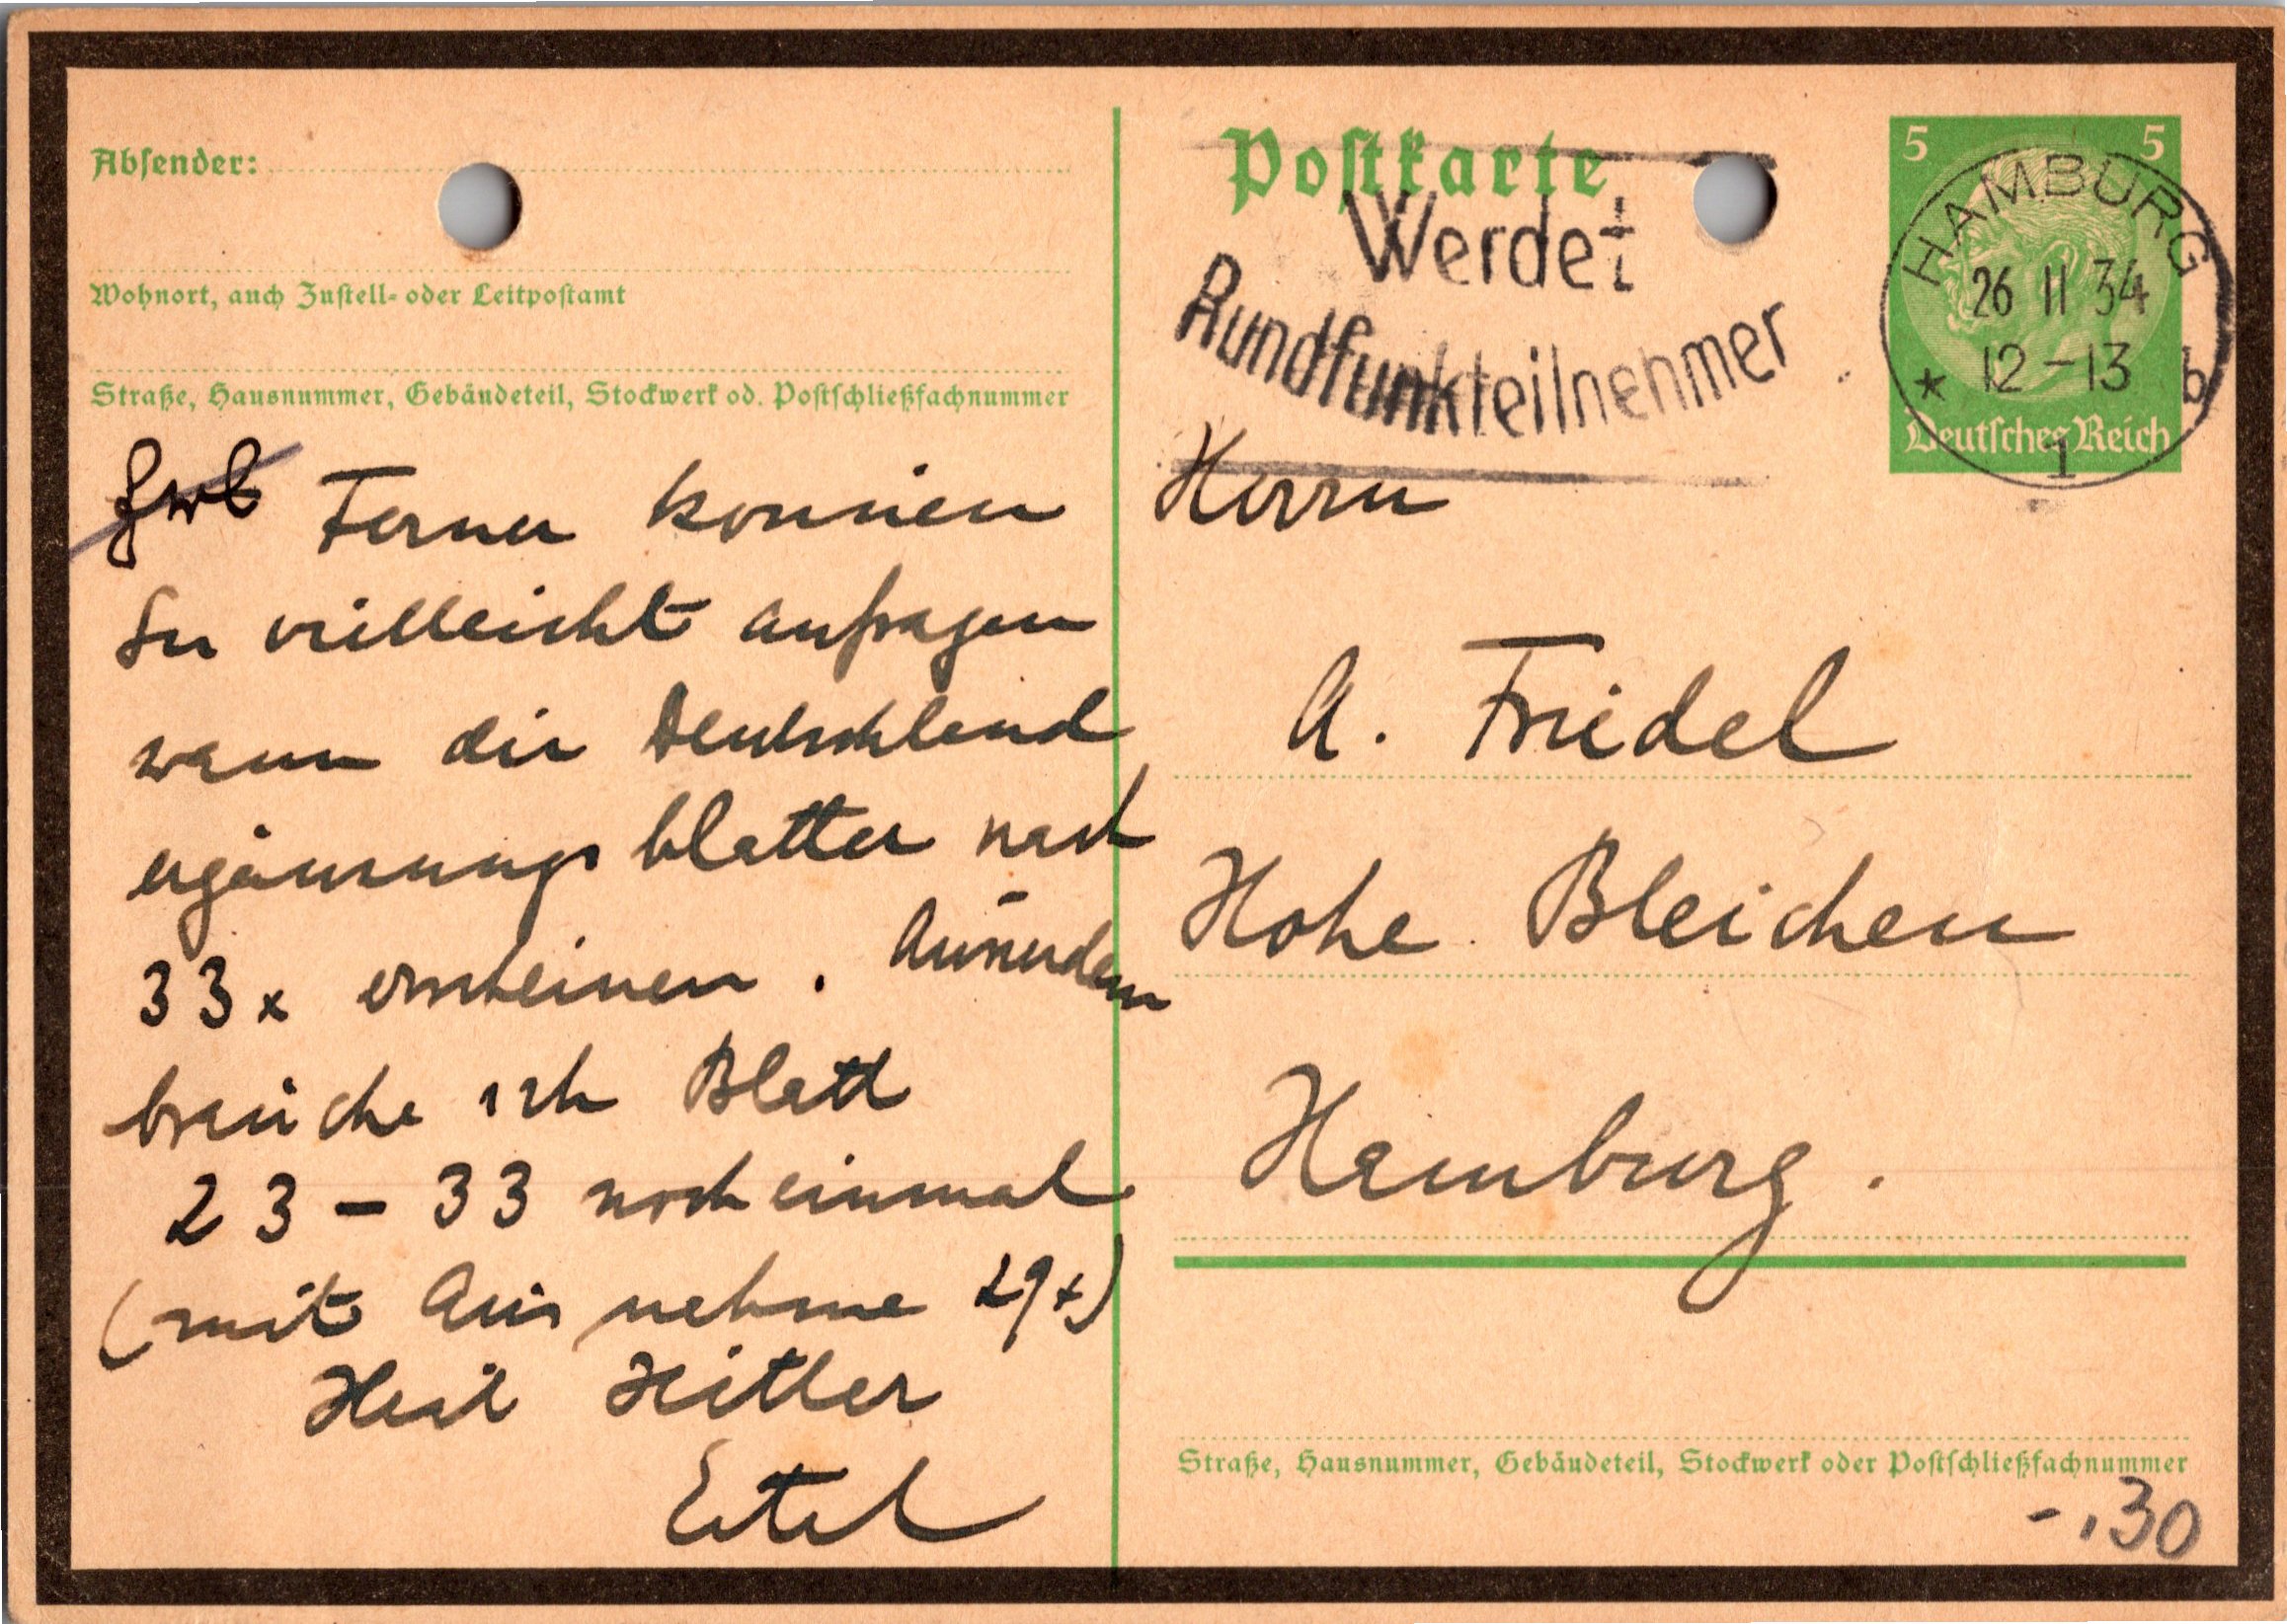 Absender:
Wohnort, auch Zustell- oder Leitpostamt
Straße, Hausnummer, Gebäudeteil, Stockwerk od. Postschließfachnummer
Ferner konnen
Sie vielleicht anfragen
wann die Deutschland
ergänzungs blatter nach
33x erscheinen. Ausserdem
brauche ich Blatt
23 - 33 noch einmal
(mit Aus nahme 29x)
Heil Hitler
Eitel
Postkarte
Werdet
Rundfunkteilnehmer
5 5
HAMBURG
26 11 34
12-13
* b
1
Deutsches Reich
Herrn
A. Friedel
Hohe Bleichen
Hamburg.
Straße, Hausnummer, Gebäudeteil, Stockwerk oder Postschließfachnummer
-.30